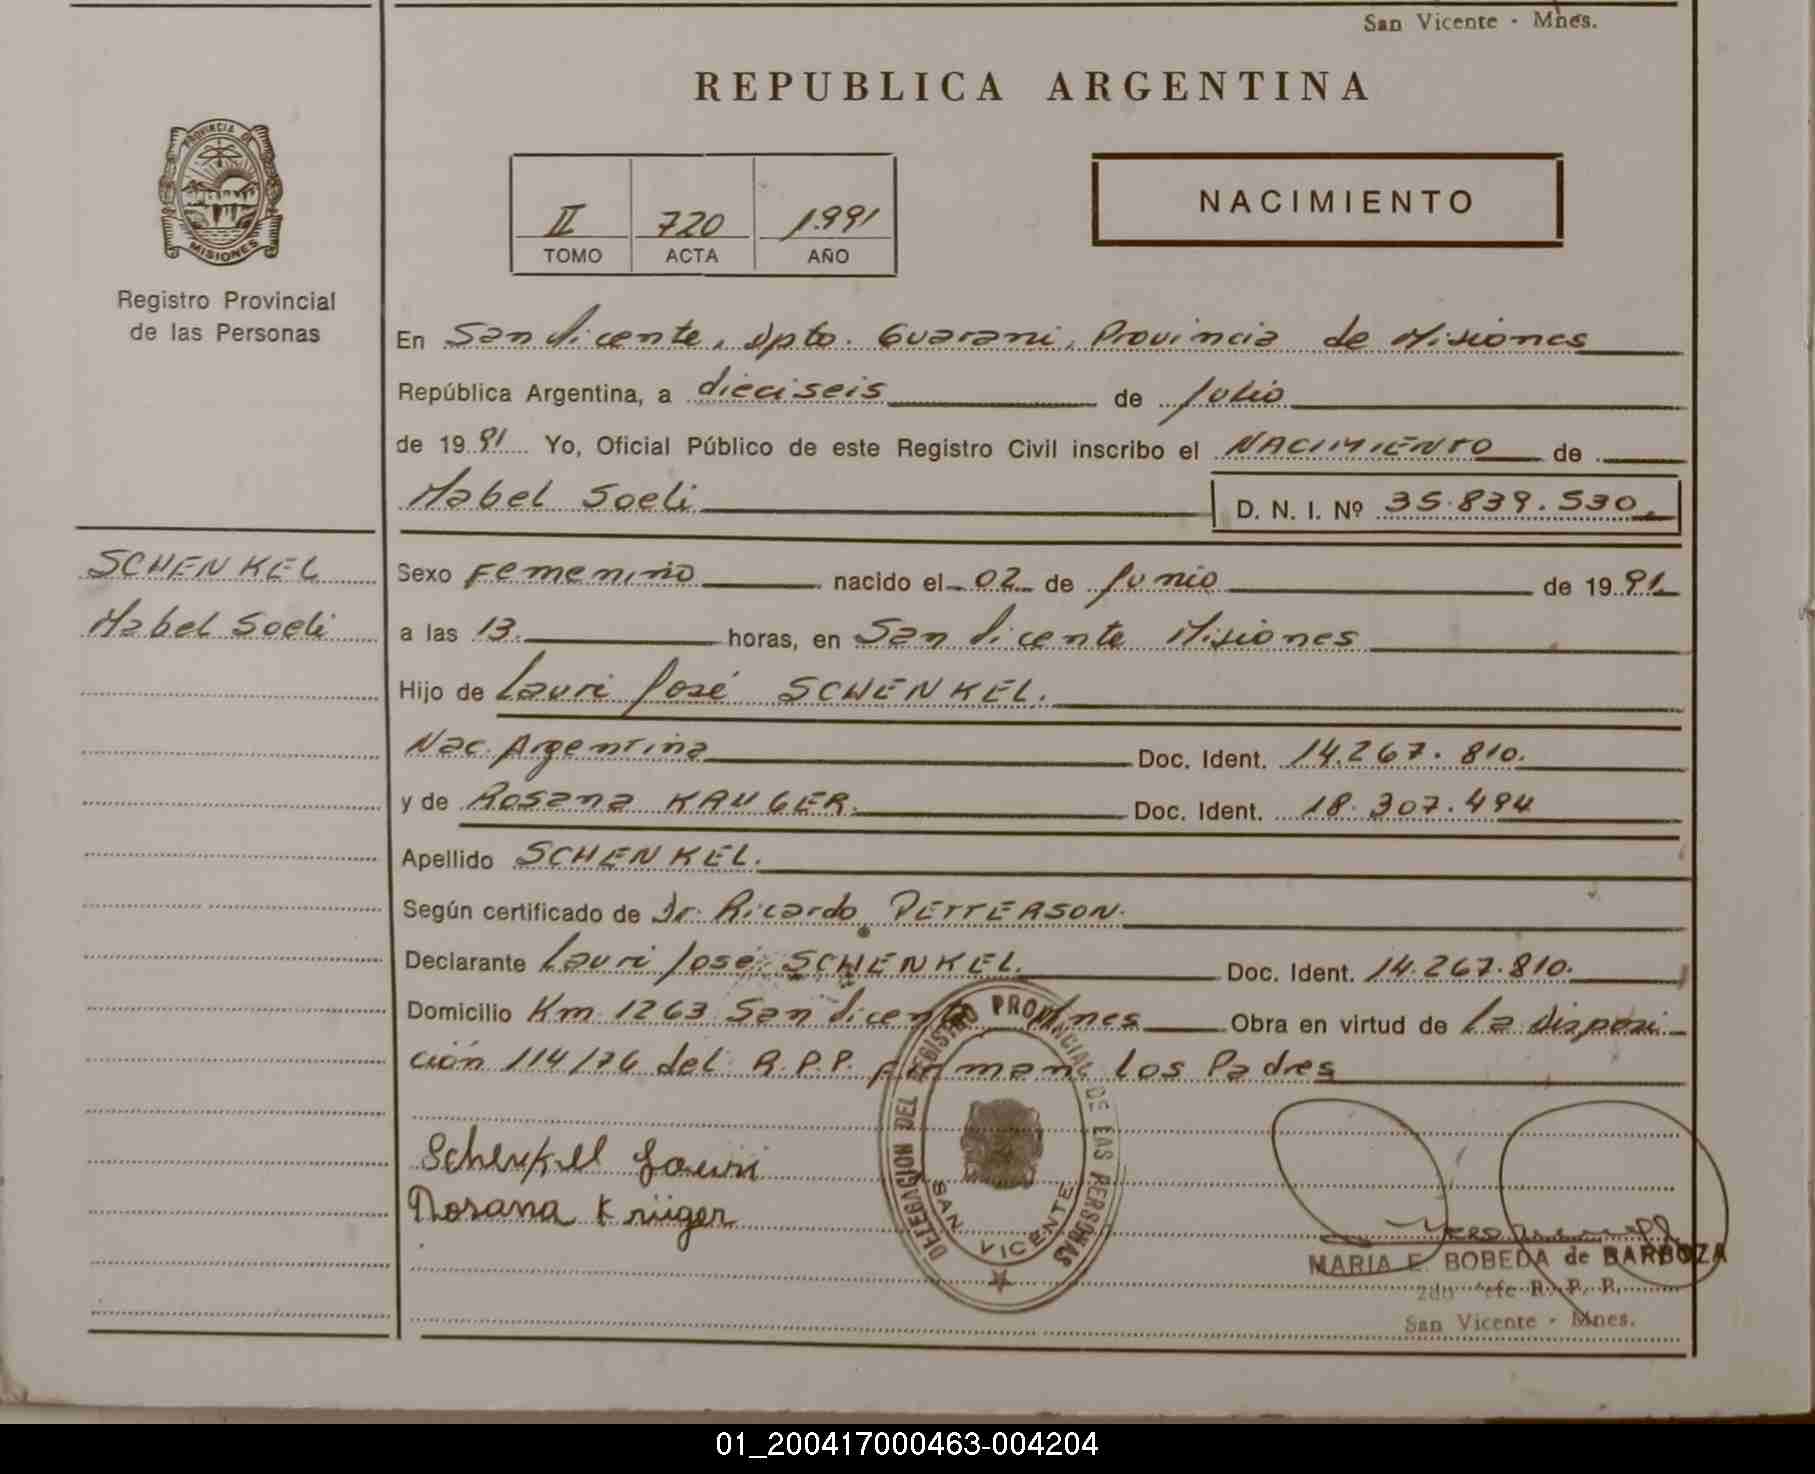 San Vicente - Mnes.
REPUBLICA ARGENTINA
PROVINCIA DE
MISIONES
Registro Provincial
de las Personas
II 720 1.991
TOMO ACTA AÑO
NACIMIENTO
En San Vicente, Dpto. Guarani, Provincia de Misiones
República Argentina, a dieciseis de Julio
de 1991 Yo, Oficial Público de este Registro Civil inscribo el NACIMIENTO de
Mabel Soeli D. N. I. Nº 35.839.530.
SCHENKEL
Mabel Soeli
Sexo Femenino nacido el 02 de Junio de 1991
a las 13. horas, en San Vicente Misiones
Hijo de Lauri José SCHENKEL.
Nac. Argentina Doc. Ident. 14.267.810.
y de Rosana KRUGER. Doc. Ident. 18.307.494
Apellido SCHENKEL.
Según certificado de Dr. Ricardo PETTERSON.
Declarante Lauri José SCHENKEL. Doc. Ident. 14.267.810.
Domicilio Km 1263 San Vicente Mnes Obra en virtud de la disposi
ción 114/76 del R.P.P. firman los Padres
Schenkel Lauri
Rosana Krüger
DELEGACION DEL REGISTRO PROVINCIAL DE LAS PERSONAS
SAN VICENTE
MARIA E. BOBEDA de BARBOZA
2do Jefe R. P. P.
San Vicente - Mnes.
01_200417000463-004204